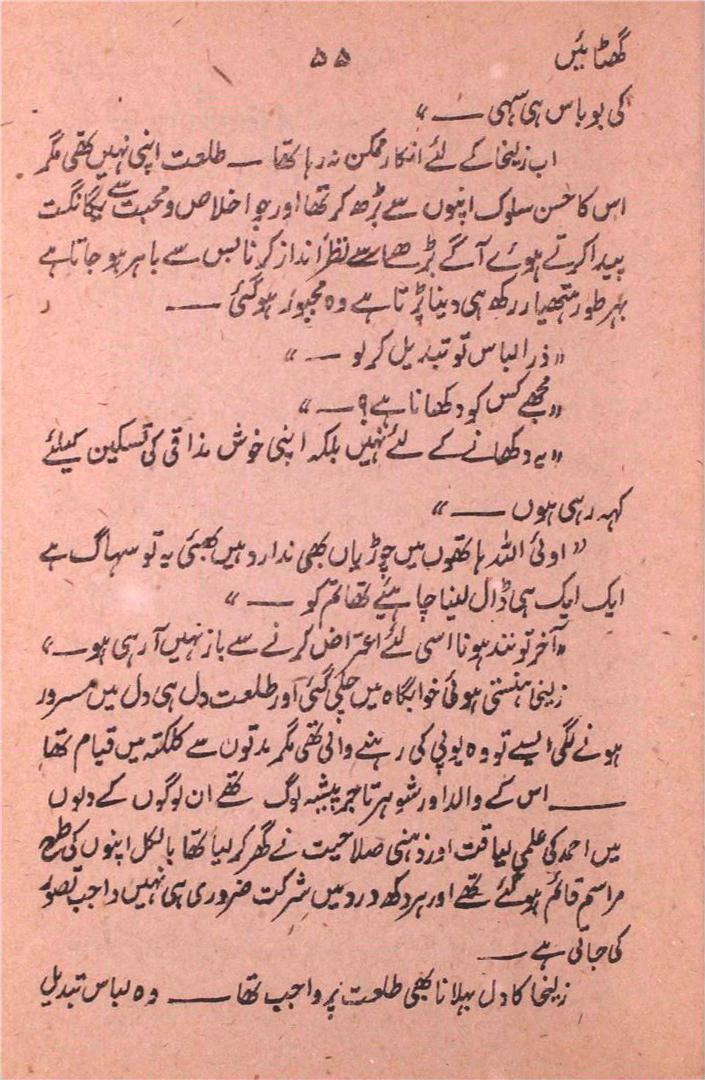 گھٹائیں ۵۵
کی بو باس ہی سہی ــــ"
اب زلیخا کے لئے انکار ممکن نہ رہا تھا ــ طلعت اپنی نہیں تھی مگر
اس کا حسن سلوک اپنوں سے بڑھ کر تھا اور جو اخلاص و محبت سے یگانگت
پیدا کرتے ہوئے آگے بڑھے اسے نظر انداز کرنا بس سے باہر ہو جاتا ہے
بہر طور ہتھیار رکھ ہی دینا پڑتا ہے وہ مجبور ہو گئی ــــ
"ذرا لباس تو تبدیل کر لو ــــ"
"مجھے کس کو دکھانا ہے؟ ــــ"
"یہ دکھانے کے لئے نہیں بلکہ اپنی خوش مذاقی کی تسکین کیلئے
کہہ رہی ہوں ــــ"
"اوئی اللہ ہاتھوں میں چوڑیاں بھی ندارد ہیں بھئی یہ تو سہاگ ہے
ایک ایک ہی ڈال لینا چاہیئے تھا تم کو ــــ"
"آخر تو نند ہو نا اسی لئے اعتراض کرنے سے باز نہیں آ رہی ہو ــــ"
زلیخا ہنستی ہوئی خوابگاہ میں چلی گئی اور طلعت دل ہی دل میں مسرور
ہونے لگی ایسے تو وہ یوپی کی رہنے والی تھی مگر مدتوں سے کلکتہ میں قیام تھا
ــــ اس کے والد اور شوہر تاجر پیشہ لوگ تھے ان لوگوں کے دلوں
میں احمد کی علمی لیاقت اور ذہنی صلاحیت نے گھر کر لیا تھا بالکل اپنوں کی طرح
مراسم قائم ہو گئے تھے اور ہر دکھ درد میں شرکت ضروری ہی نہیں واجب تصور
کی جاتی ہے ــــ
زلیخا کا دل بہلانا بھی طلعت پر واجب تھا ــــ وہ لباس تبدیل